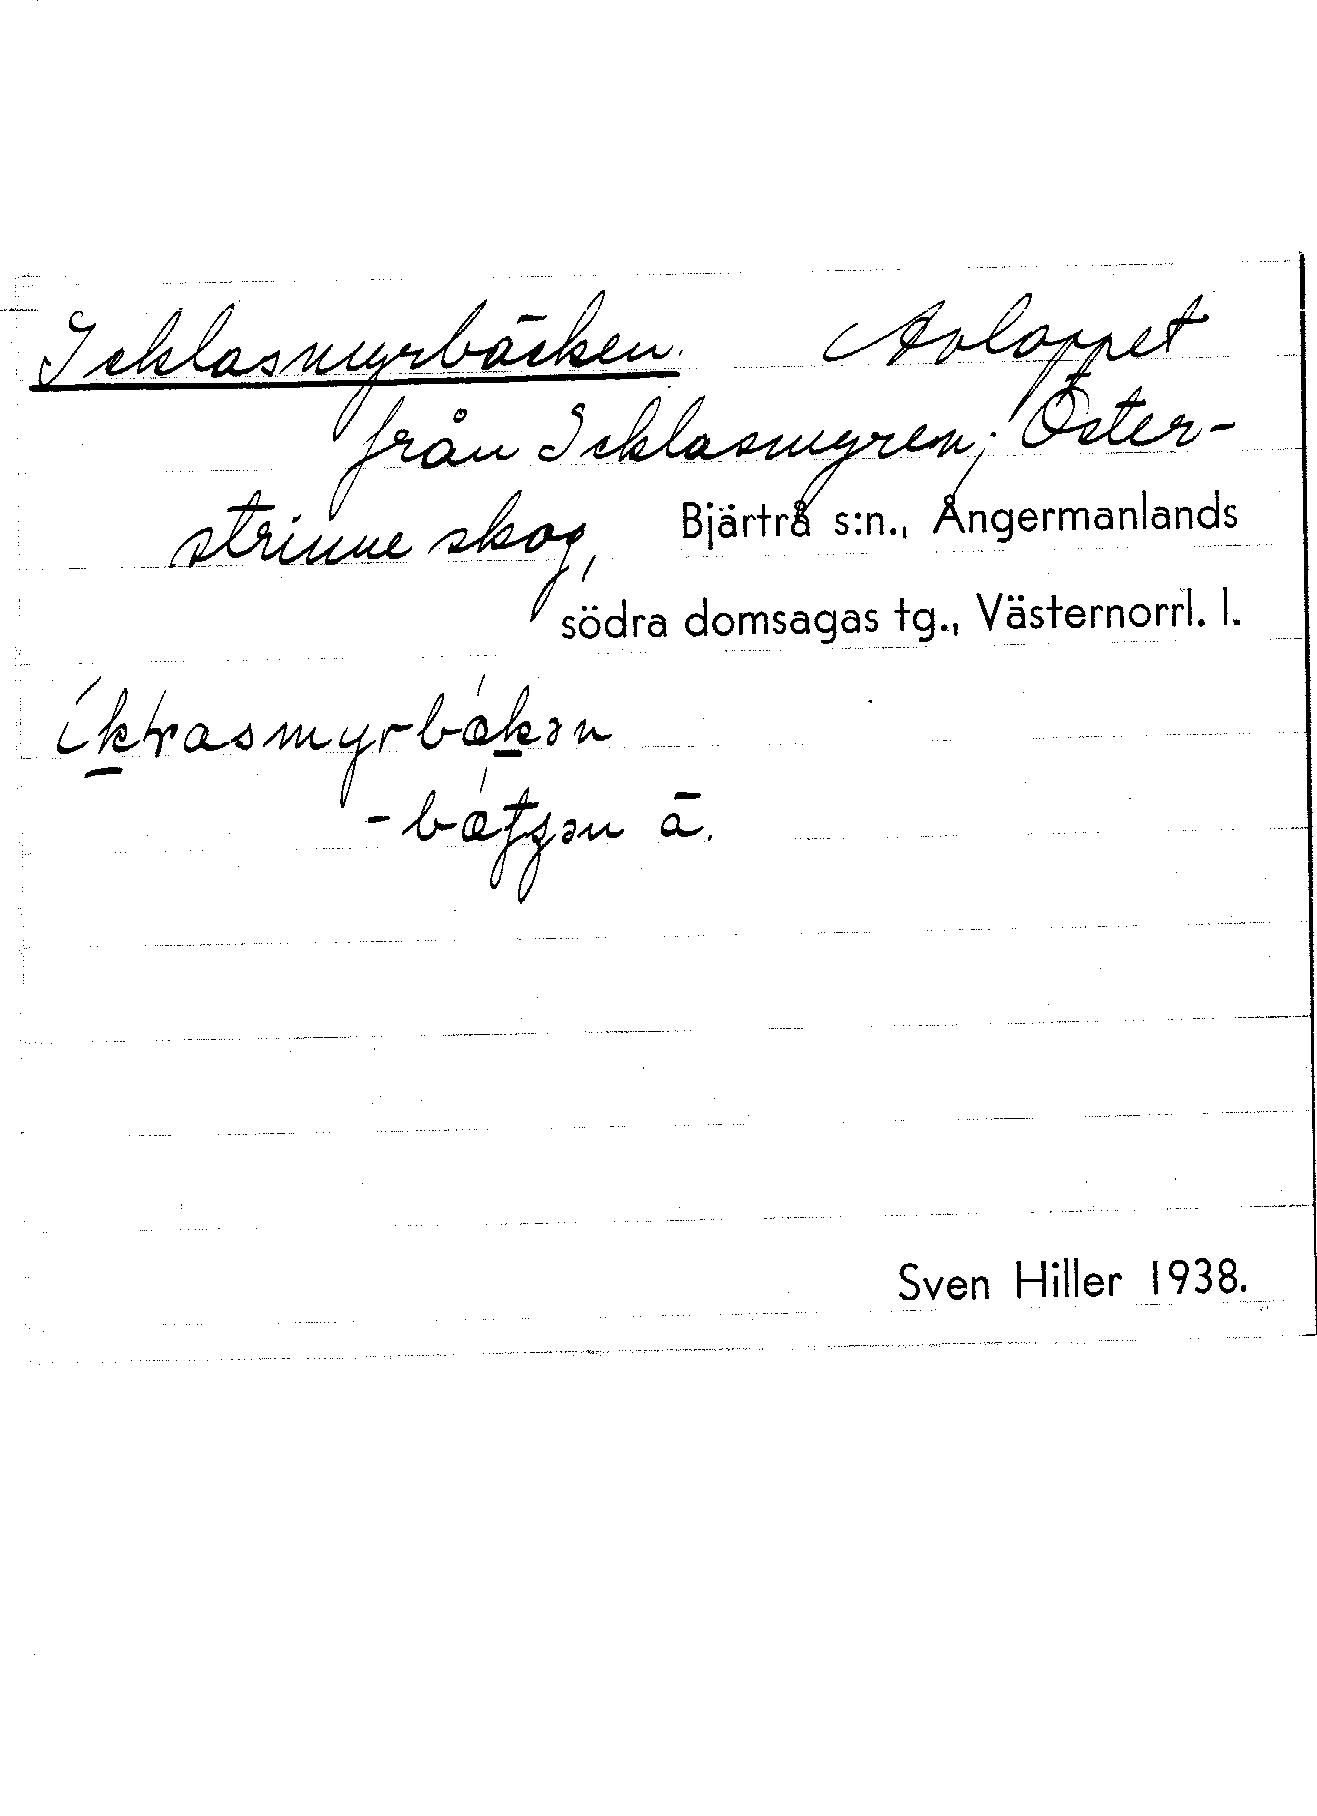 Icklasmyrbäcken. Avloppet
från Icklasmyren; Öster-
strinne skog,
Bjärtrå s:n., Ångermanlands
södra domsagas tg., Västernorrl. l.
-bætʃən ä.
Sven Hiller 1938.